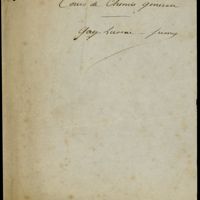 Cours de Chimie générale
Gay-Lussac